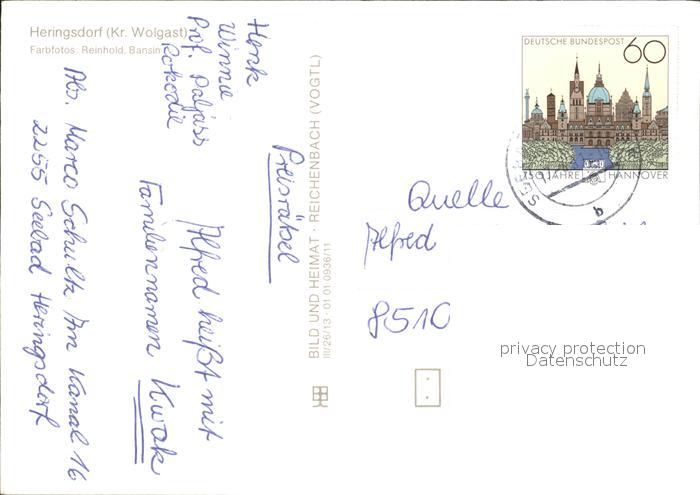 Heringsdorf (Kr. Wolgast)
Farbfotos: Reinhold, Bansin
Henk
Winnie
Prof. Paljass
Rokodil
Preisrätsel
Alfred heißt mit
Familiennamen Kwak
Abs. Marco Schultz Am Kanal 16
2255 Seebad Heringsdorf
BILD UND HEIMAT · REICHENBACH (VOGTL)
III/26/13 · 01 01 0936/11
DEUTSCHE BUNDESPOST 60
750 JAHRE HANNOVER
b
Quelle
Alfred
8510
privacy protection
Datenschutz